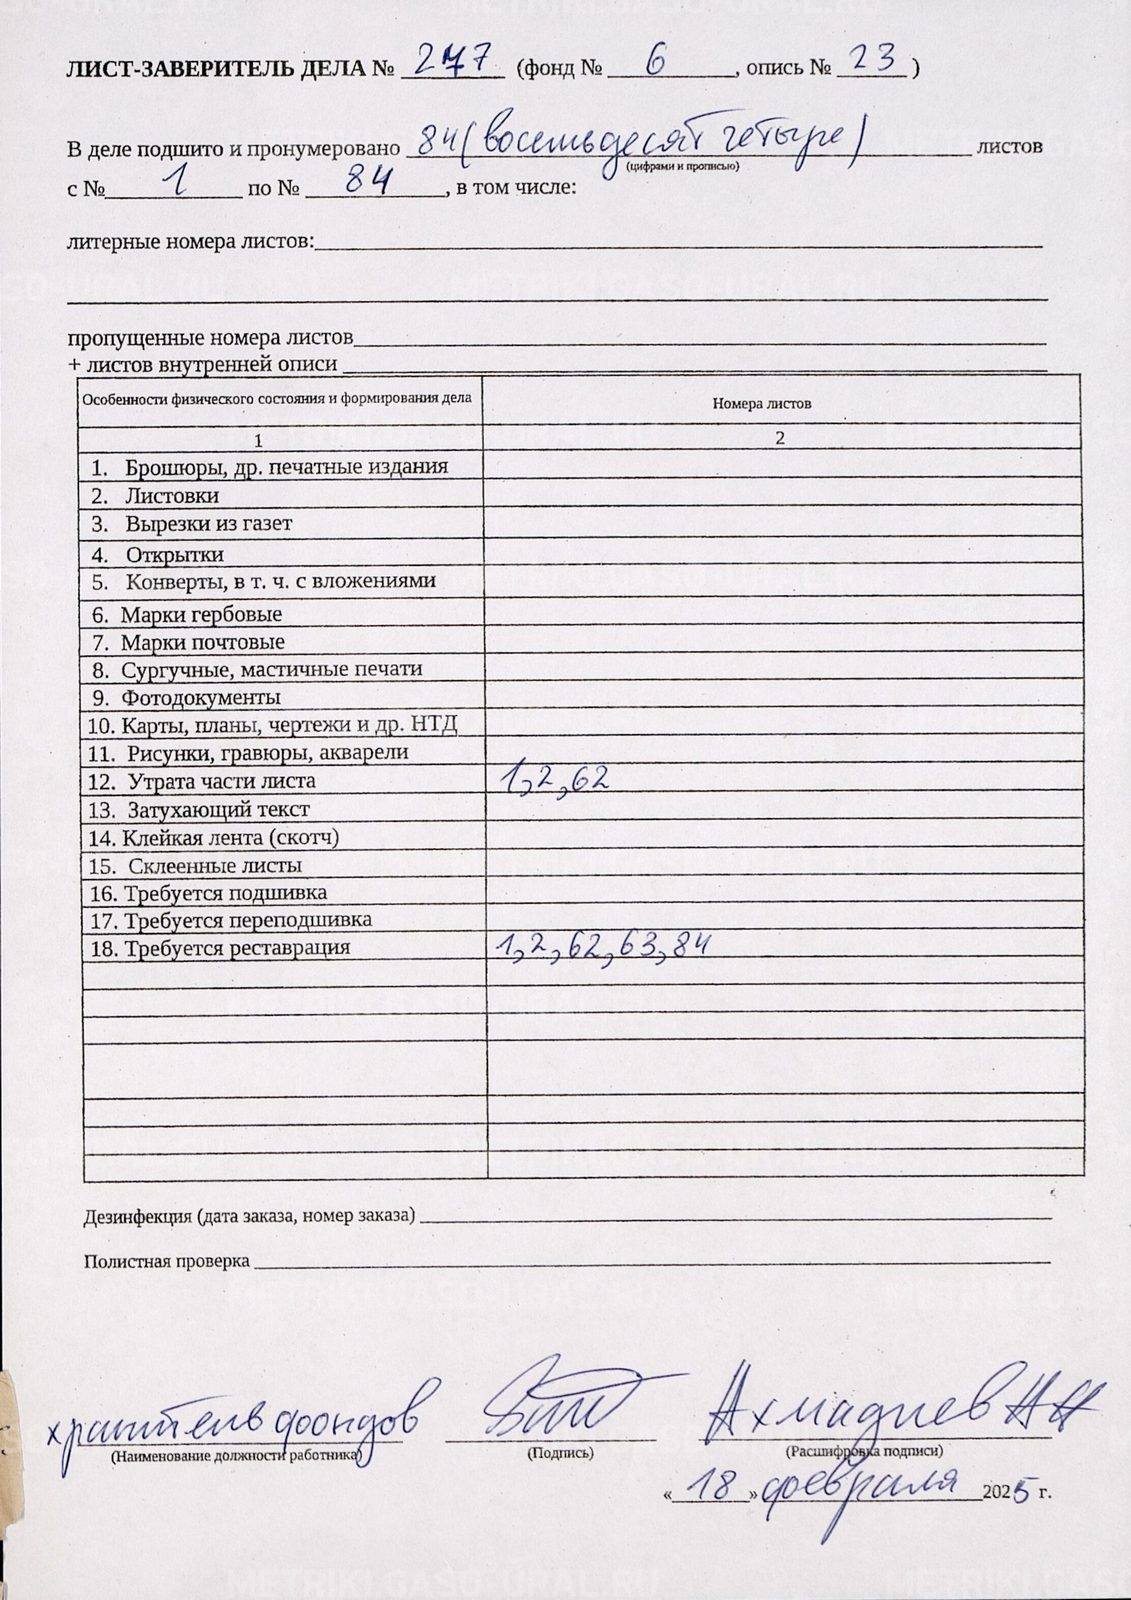 ЛИСТ-ЗАВЕРИТЕЛЬ ДЕЛА № 277 (фонд № 6, опись № 23)
В деле подшито и пронумеровано 84 (восемьдесят четыре) листов
(цифрами и прописью)
с № 1 по № 84, в том числе:
литерные номера листов:
пропущенные номера листов
+ листов внутренней описи
Особенности физического состояния и формирования дела Номера листов
1 2
1. Брошюры, др. печатные издания
2. Листовки
3. Вырезки из газет
4. Открытки
5. Конверты, в т. ч. с вложениями
6. Марки гербовые
7. Марки почтовые
8. Сургучные, мастичные печати
9. Фотодокументы
10. Карты, планы, чертежи и др. НТД
11. Рисунки, гравюры, акварели
12. Утрата части листа 1,2,62
13. Затухающий текст
14. Клейкая лента (скотч)
15. Склеенные листы
16. Требуется подшивка
17. Требуется переподшивка
18. Требуется реставрация 1,2,62,63,84
Дезинфекция (дата заказа, номер заказа)
Полистная проверка
хранитель фондов Ахмадиев АА
(Наименование должности работника) (Подпись) (Расшифровка подписи)
« 18 » февраля 2025 г.
METRIKI.GASO-URAL.RU